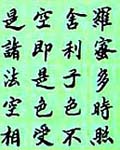 羅蜜多時照
舍利子色不
空即是色受
是諸法空相